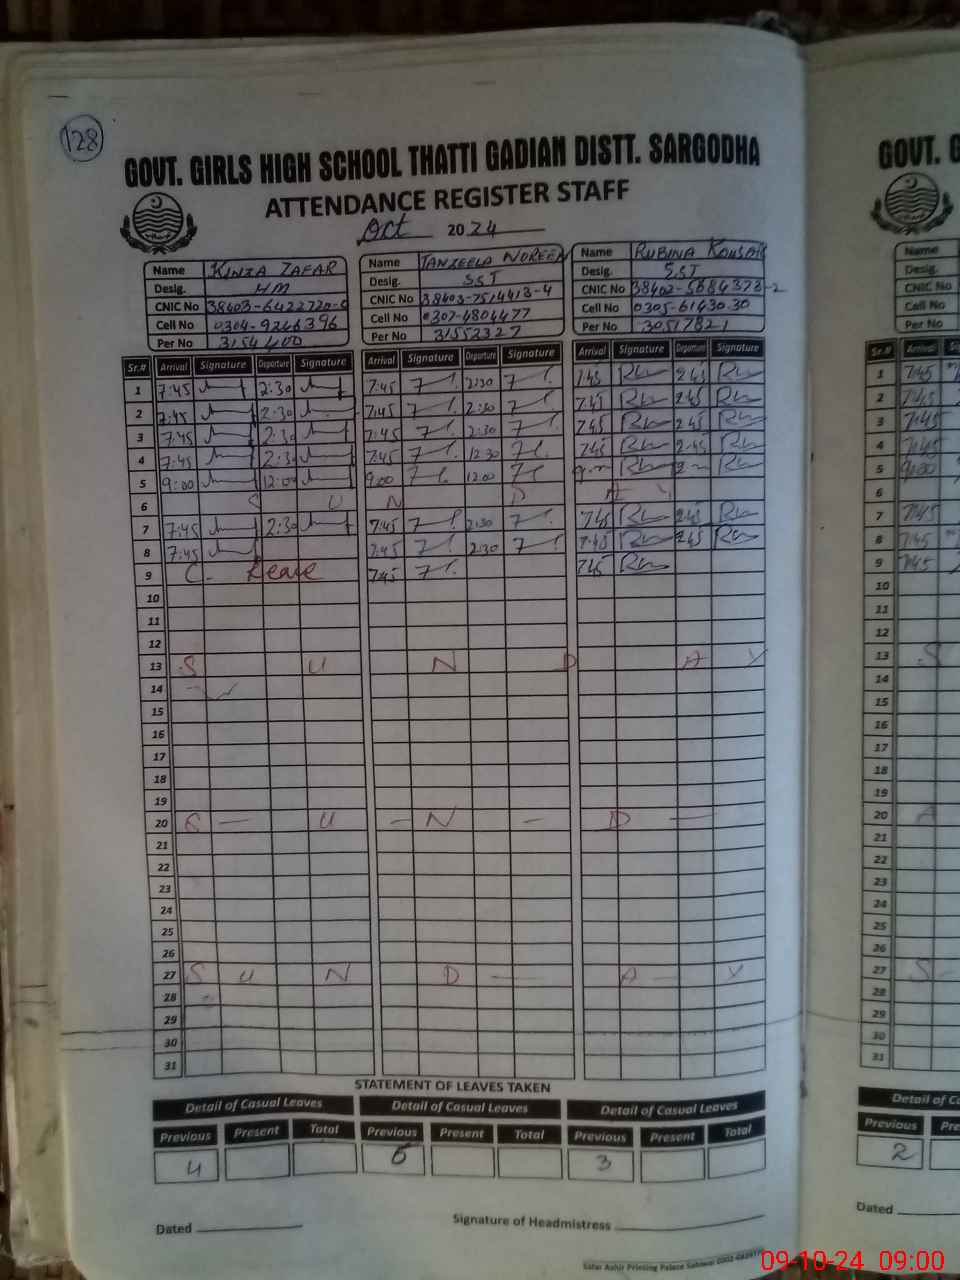 128
GOVT. GIRLS HIGH SCHOOL THATTI GADIAN DISTT. SARGODHA
GOVT. G
ATTENDANCE REGISTER STAFF
Oct 2024
Name KINZA ZAFAR Name TANZEELA NOREEN Name RUBINA KOUSAR Name
Desig. HM Desig. SST Desig. SST Desig.
CNIC No CNIC No 38403-7514413-4 CNIC No CNIC No
Cell No 0304-9246396 Cell No 0307-4804477 Cell No 0305-6143030 Cell No
Per No 3154400 Per No 31552327 Per No 30517821 Per No
Sr.# Arrival Signature Departure Signature Arrival Signature Departure Signature Arrival Signature Departure Signature Sr.# Arrival
1 7:45 2:30 7:45 2:30 7:45 2:45 1 7:45
2 7:45 2:30 7:45 2:30 7:45 2:45 2 7:45
3 7:45 2:30 7:45 2:30 7:45 2:45 3 7:45
4 7:45 2:30 7:45 12:30 7:45 2:45 4 7:45
5 9:00 12:00 9:00 12:00 5 9:00
6 S U N D A Y 6
7 7:45 2:30 7:45 2:30 7:45 2:45 7 7:45
8 7:45 7:45 2:30 7:45 2:45 8 7:45
9 C. Leave 7:45 7:45 9 7:45
10 10
11 11
12 12
13 S U N D A Y 13 S
14 14
15 15
16 16
17 17
18 18
19 19
20 S — U - N - D — 20 A
21 21
22 22
23 23
24 24
25 25
26 26
27 S U N D — A — Y 27 S-
28 28
29 29
30 30
31 31
STATEMENT OF LEAVES TAKEN
Detail of Casual Leaves Detail of Casual Leaves Detail of Casual Leaves Detail of Ca
Previous Present Total Previous Present Total Previous Present Total Previous Pre
4 5 3 2
Dated Signature of Headmistress Dated
Safar Ashir Printing Palace Sahiwal
09-10-24 09:00